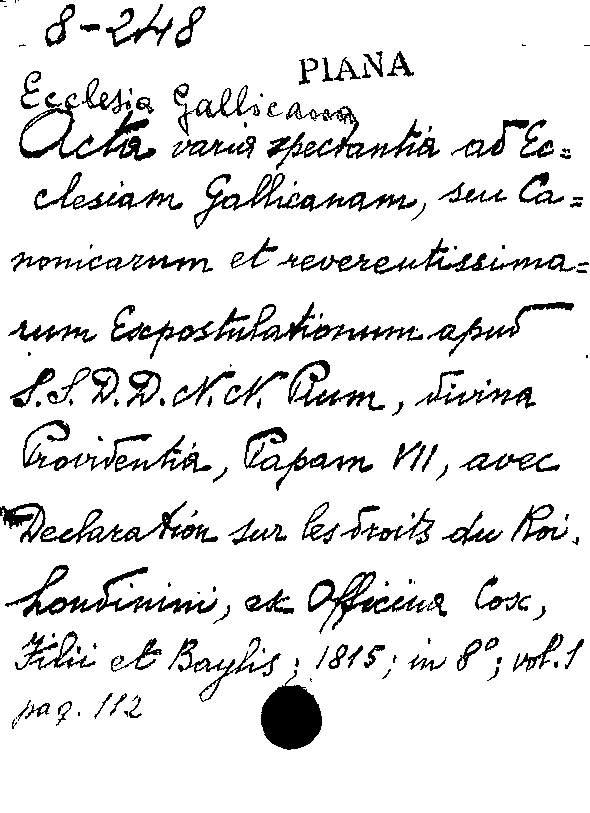 8-248
PIANA
Ecclesia Gallicana
Acta varia spectantia ad Ec=
clesiam Gallicanam, seu Ca=
nonicarum et reverentissima=
rum Expostulationum apud
S.S.D.D.N.N. Pium, divina
Providentia, Papam VII, avec
Declaration sur les droits du Roi.
Londinini, ex Officina Cox,
Filii et Baylis; 1815; in 8º; vol. 1
pag. 112